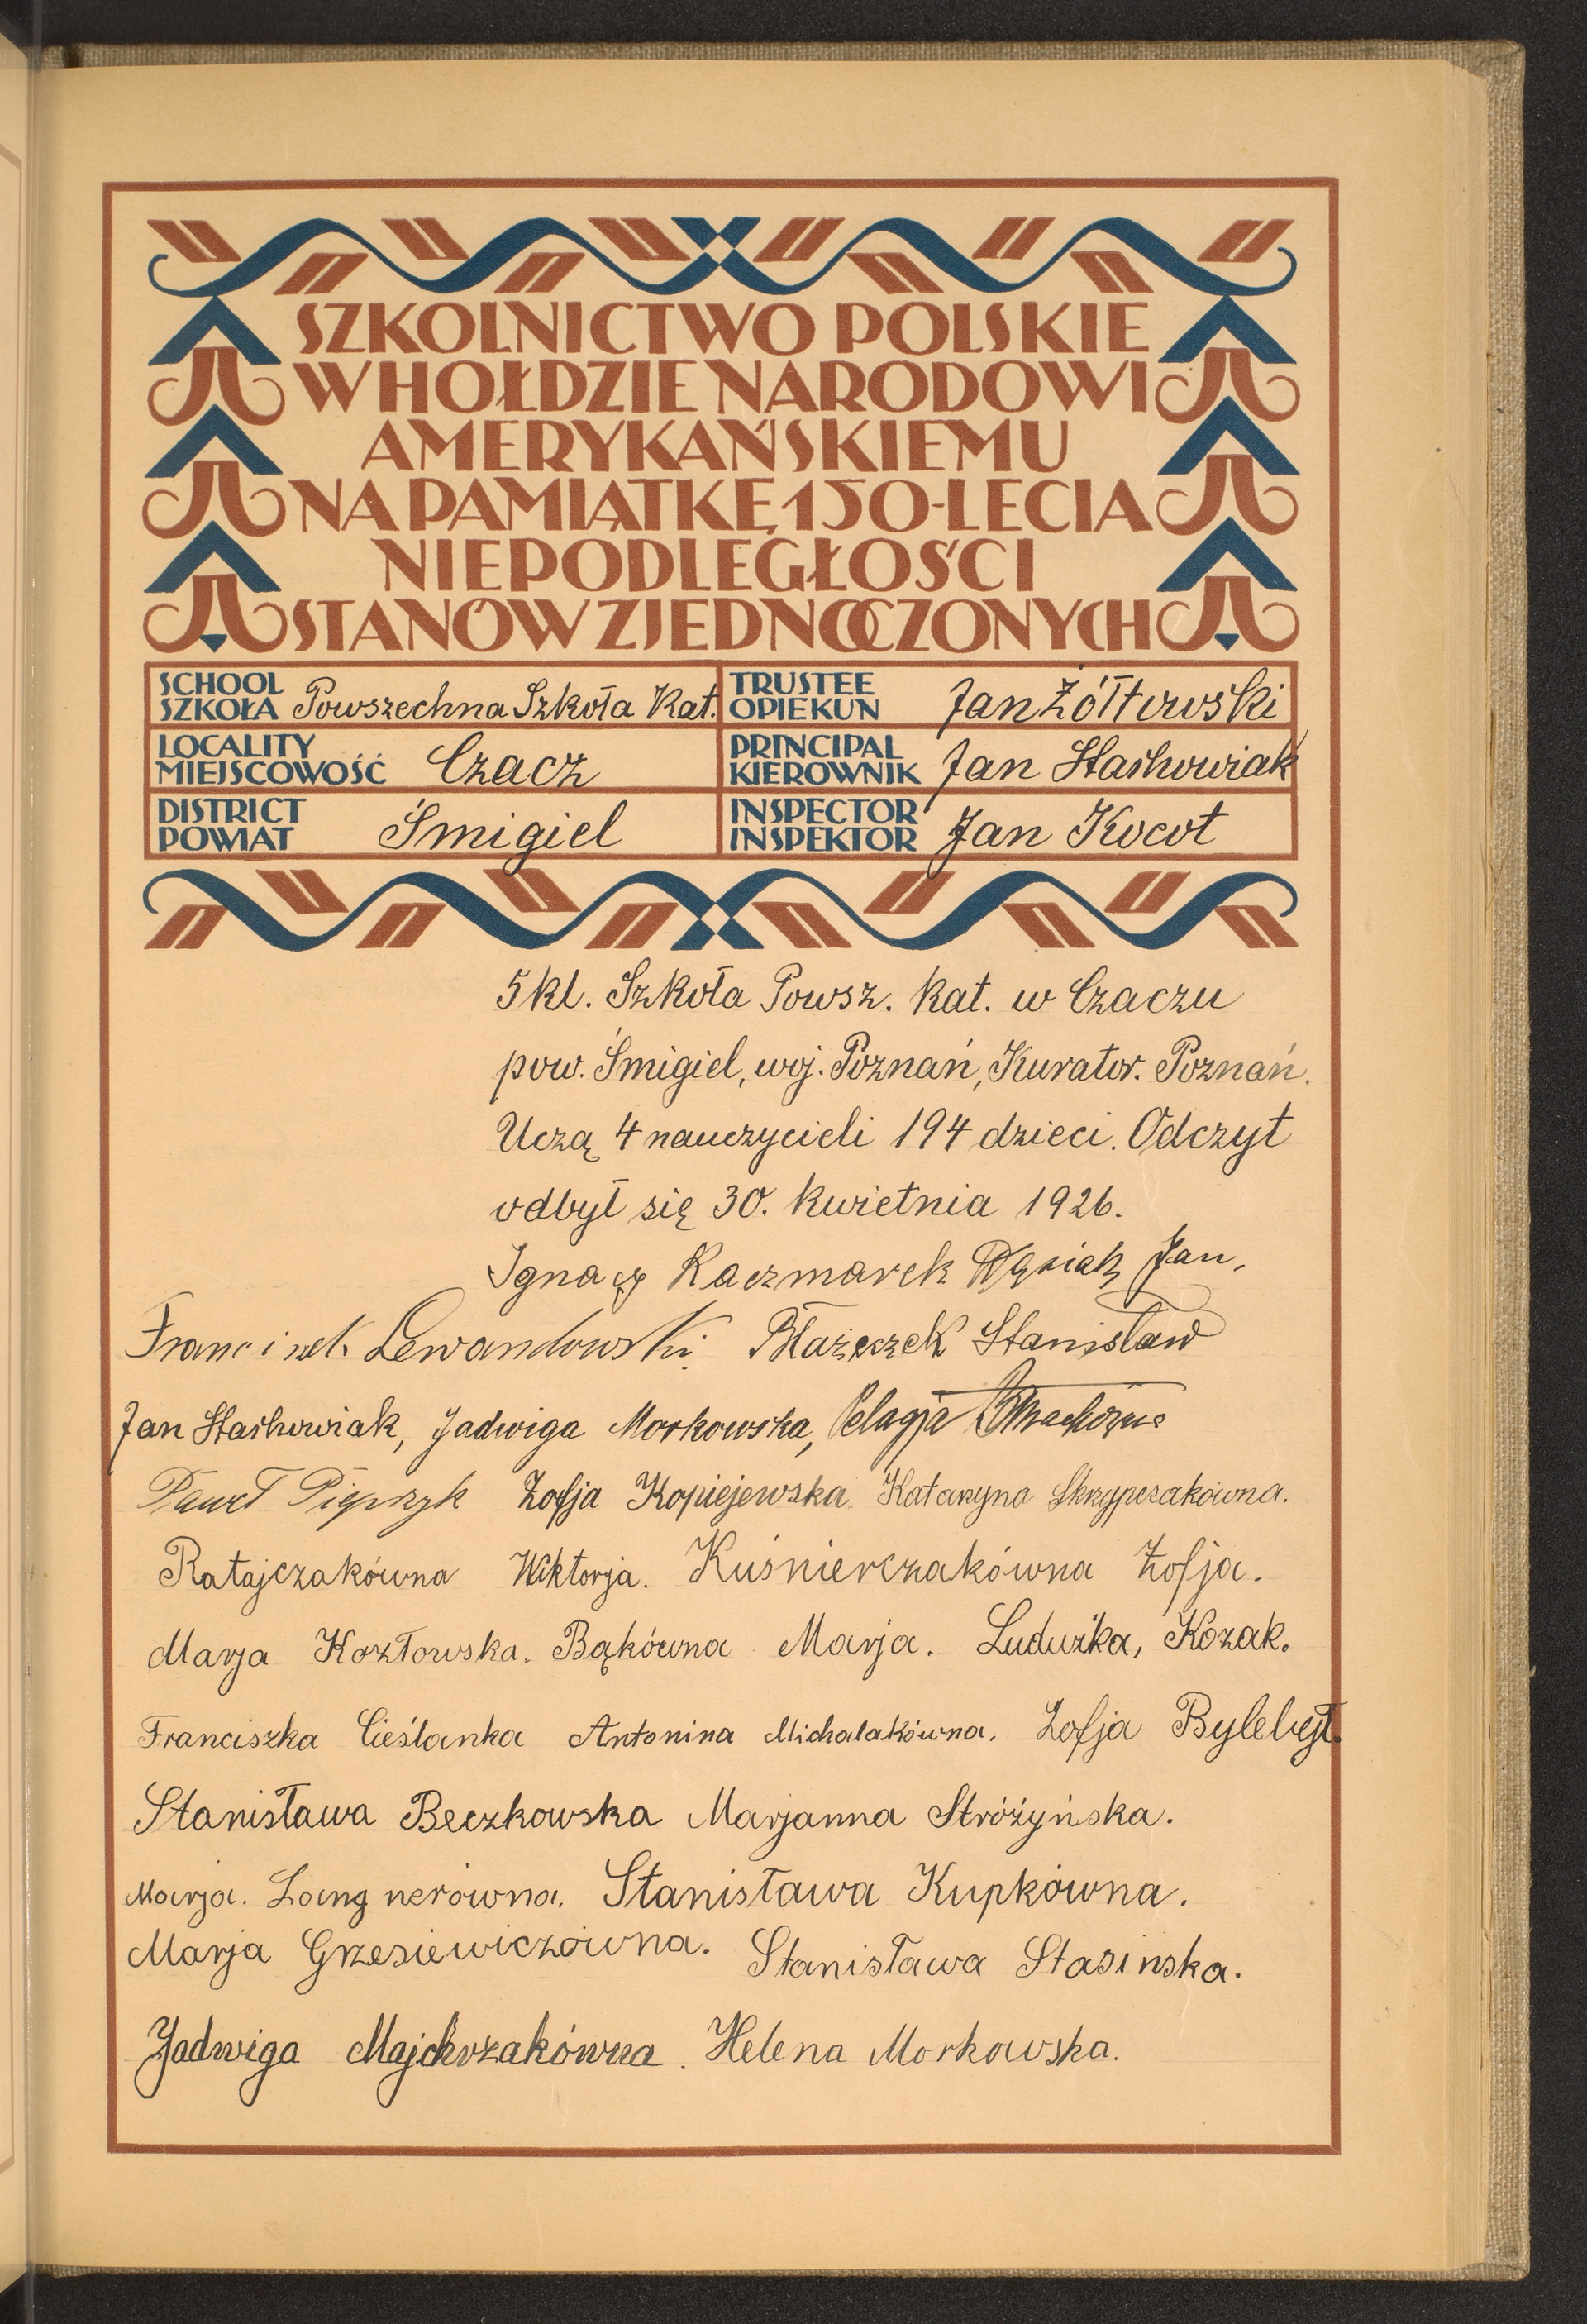 SZKOLNICTWO POLSKIE
W HOŁDZIE NARODOWI
AMERYKAŃSKIEMU
NA PAMIĄTKĘ 150-LECIA
NIEPODLEGŁOŚCI
STANÓW ZJEDNOCZONYCH
SCHOOL
SZKOŁA Powszechna Szkoła Kat.
TRUSTEE
OPIEKUN Jan Żółtowski
LOCALITY
MIEJSCOWOŚĆ Czacz
PRINCIPAL
KIEROWNIK Jan Stachowiak
DISTRICT
POWIAT Śmigiel
INSPECTOR
INSPEKTOR Jan Kocot
5 kl. Szkoła Powsz. Kat. w Czaczu
pow. Śmigiel, woj. Poznań, Kurator. Poznań.
Uczą 4 nauczycieli 194 dzieci. Odczyt
odbył się 30. kwietnia 1926.
Ignacy Kaczmarek Jan,
Lewandowski Błażeczek Stanisław
Jan Stachowiak, Jadwiga Morkowska, Pelagja
Paweł Pieprzyk Zofja Kopiejewska Katarzyna Skrzypczakówna.
Ratajczakówna Wiktorja. Kuśnierczakówna Zofja.
Marja Kozłowska. Bąkówna Marja. Ludwika, Kozak.
Franciszka Cieślanka Antonina Michalakówna. Zofja Bylebył.
Stanisława Beczkowska Marjanna Stróżyńska.
Marja. Langnerówna. Stanisława Kupkówna.
Marja Grzesiewiczówna. Stanisława Stasinska.
Jadwiga Majchrzakówna. Helena Morkowska.